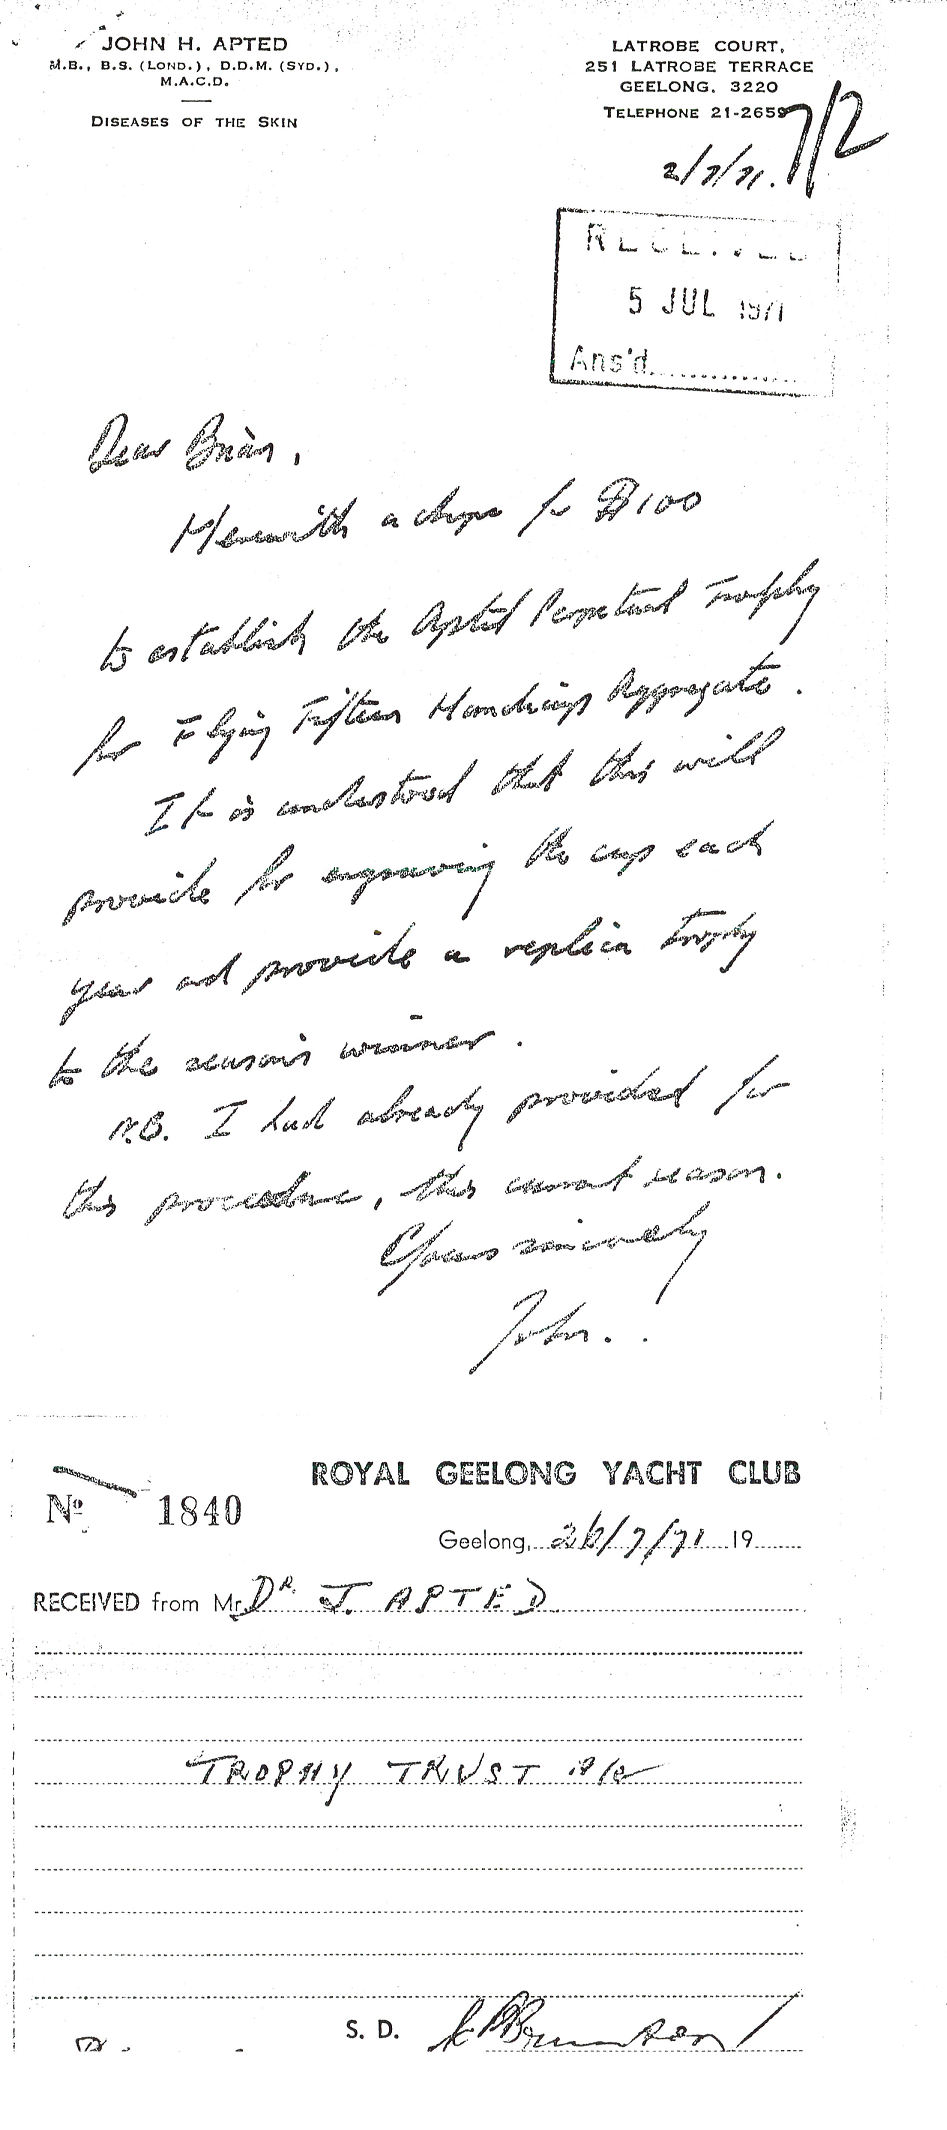 JOHN H. APTED
M.B., B.S. (LOND.), D.D.M. (SYD.),
M.A.C.D.
DISEASES OF THE SKIN
LATROBE COURT,
251 LATROBE TERRACE
GEELONG. 3220
TELEPHONE 21-2659
7/2
2/7/71.
RECEIVED
5 JUL 1971
Ans'd
Dear Brian,
Herewith a cheque for $100
to establish the Apted Perpetual Trophy
for Flying Fifteen Handicap Aggregate.
It is understood that this will
provide for engraving the cup each
year and provide a replica trophy
to the season's winner.
N.B. I had already provided for
this procedure, this current season.
Yours sincerely
John.
ROYAL GEELONG YACHT CLUB
No 1840
Geelong, 26/7/71 19
RECEIVED from Mr. DR. J. APTED
TROPHY TRUST A/C
S. D.